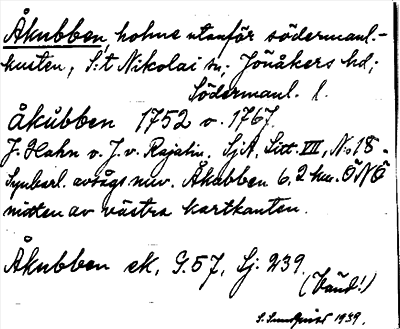 Åkubben, holme utanför södermanl.-
kusten, S:t Nikolai sn; Jönåkers hd;
Södermanl. l.
Åkübben 1752 o. 1767.
J. Hahn o. J. v. Rajalin. SjA, Litt. VIII, N:o 18-
Synbarl. avsågs nuv. Åkubben 6,2 km. ÖNÖ
mitten av västra kartkanten.
Åkubben ek, G.57, Sj. 239.
(Vänd!)
S. Sundquist 1939.